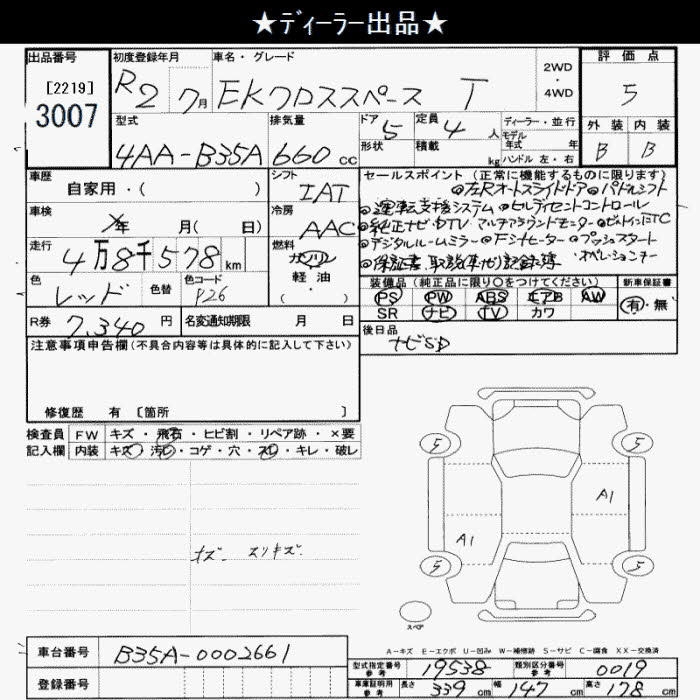 ★ディーラー出品★
出品番号
[2219]
3007
初度登録年月
R2 7月
車名・グレード
EKクロススペース T
2WD
・
4WD
評価点
5
型式
4AA-B35A
排気量
660 cc
ドア 5
形状
定員 4 人
積載 kg
ディーラー・並行
モデル
年式 年
ハンドル 左・右
外装 内装
B B
車歴
自家用・( )
シフト
IAT
セールスポイント(正常に機能するものに限ります)
◎左右オートスライドドア◎パドルシフト
◎運転支援システム◎ヒルディセントコントロール
◎純正ナビ・DTV マルチアラウンドモニター◎ビルトインETC
◎デジタルルームミラー◎Fシートヒーター◎プッシュスタート
◎保証書、取説(車・ナビ)記録簿 オペレーションキー
車検
年 月( 日)
冷房
AAC
走行
4万8千578km
燃料
ガソリン
軽・油
( ・ )
色
レッド
色替
色コード
P26
装備品(純正品に限り○をつけてください)
PS PW ABS エアB AW
SR ナビ TV カワ
新車保証書
有・無
R券 7,340 円
名変通知期限 月 日
後日品
ナビSD
注意事項申告欄(不具合内容等は具体的に記入して下さい)
修復歴 有 [箇所 ]
検査員 FW キズ・飛石・ヒビ割・リペア跡・×要
記入欄 内装 キズ・汚レ・コゲ・穴・スレ・キレ・破レ
キズ、スリキズ、
5 5
A1
A1
5 5
スペア
A-キズ E-エクボ U-凹み W-補修跡 S-サビ C-腐食 XX-交換済
車台番号 B35A-0002661
登録番号
型式指定番号
参考
19538
類別区分番号
参考
0019
車庫証明用
参考
長さ 339 cm 幅 147 cm 高さ 178 cm